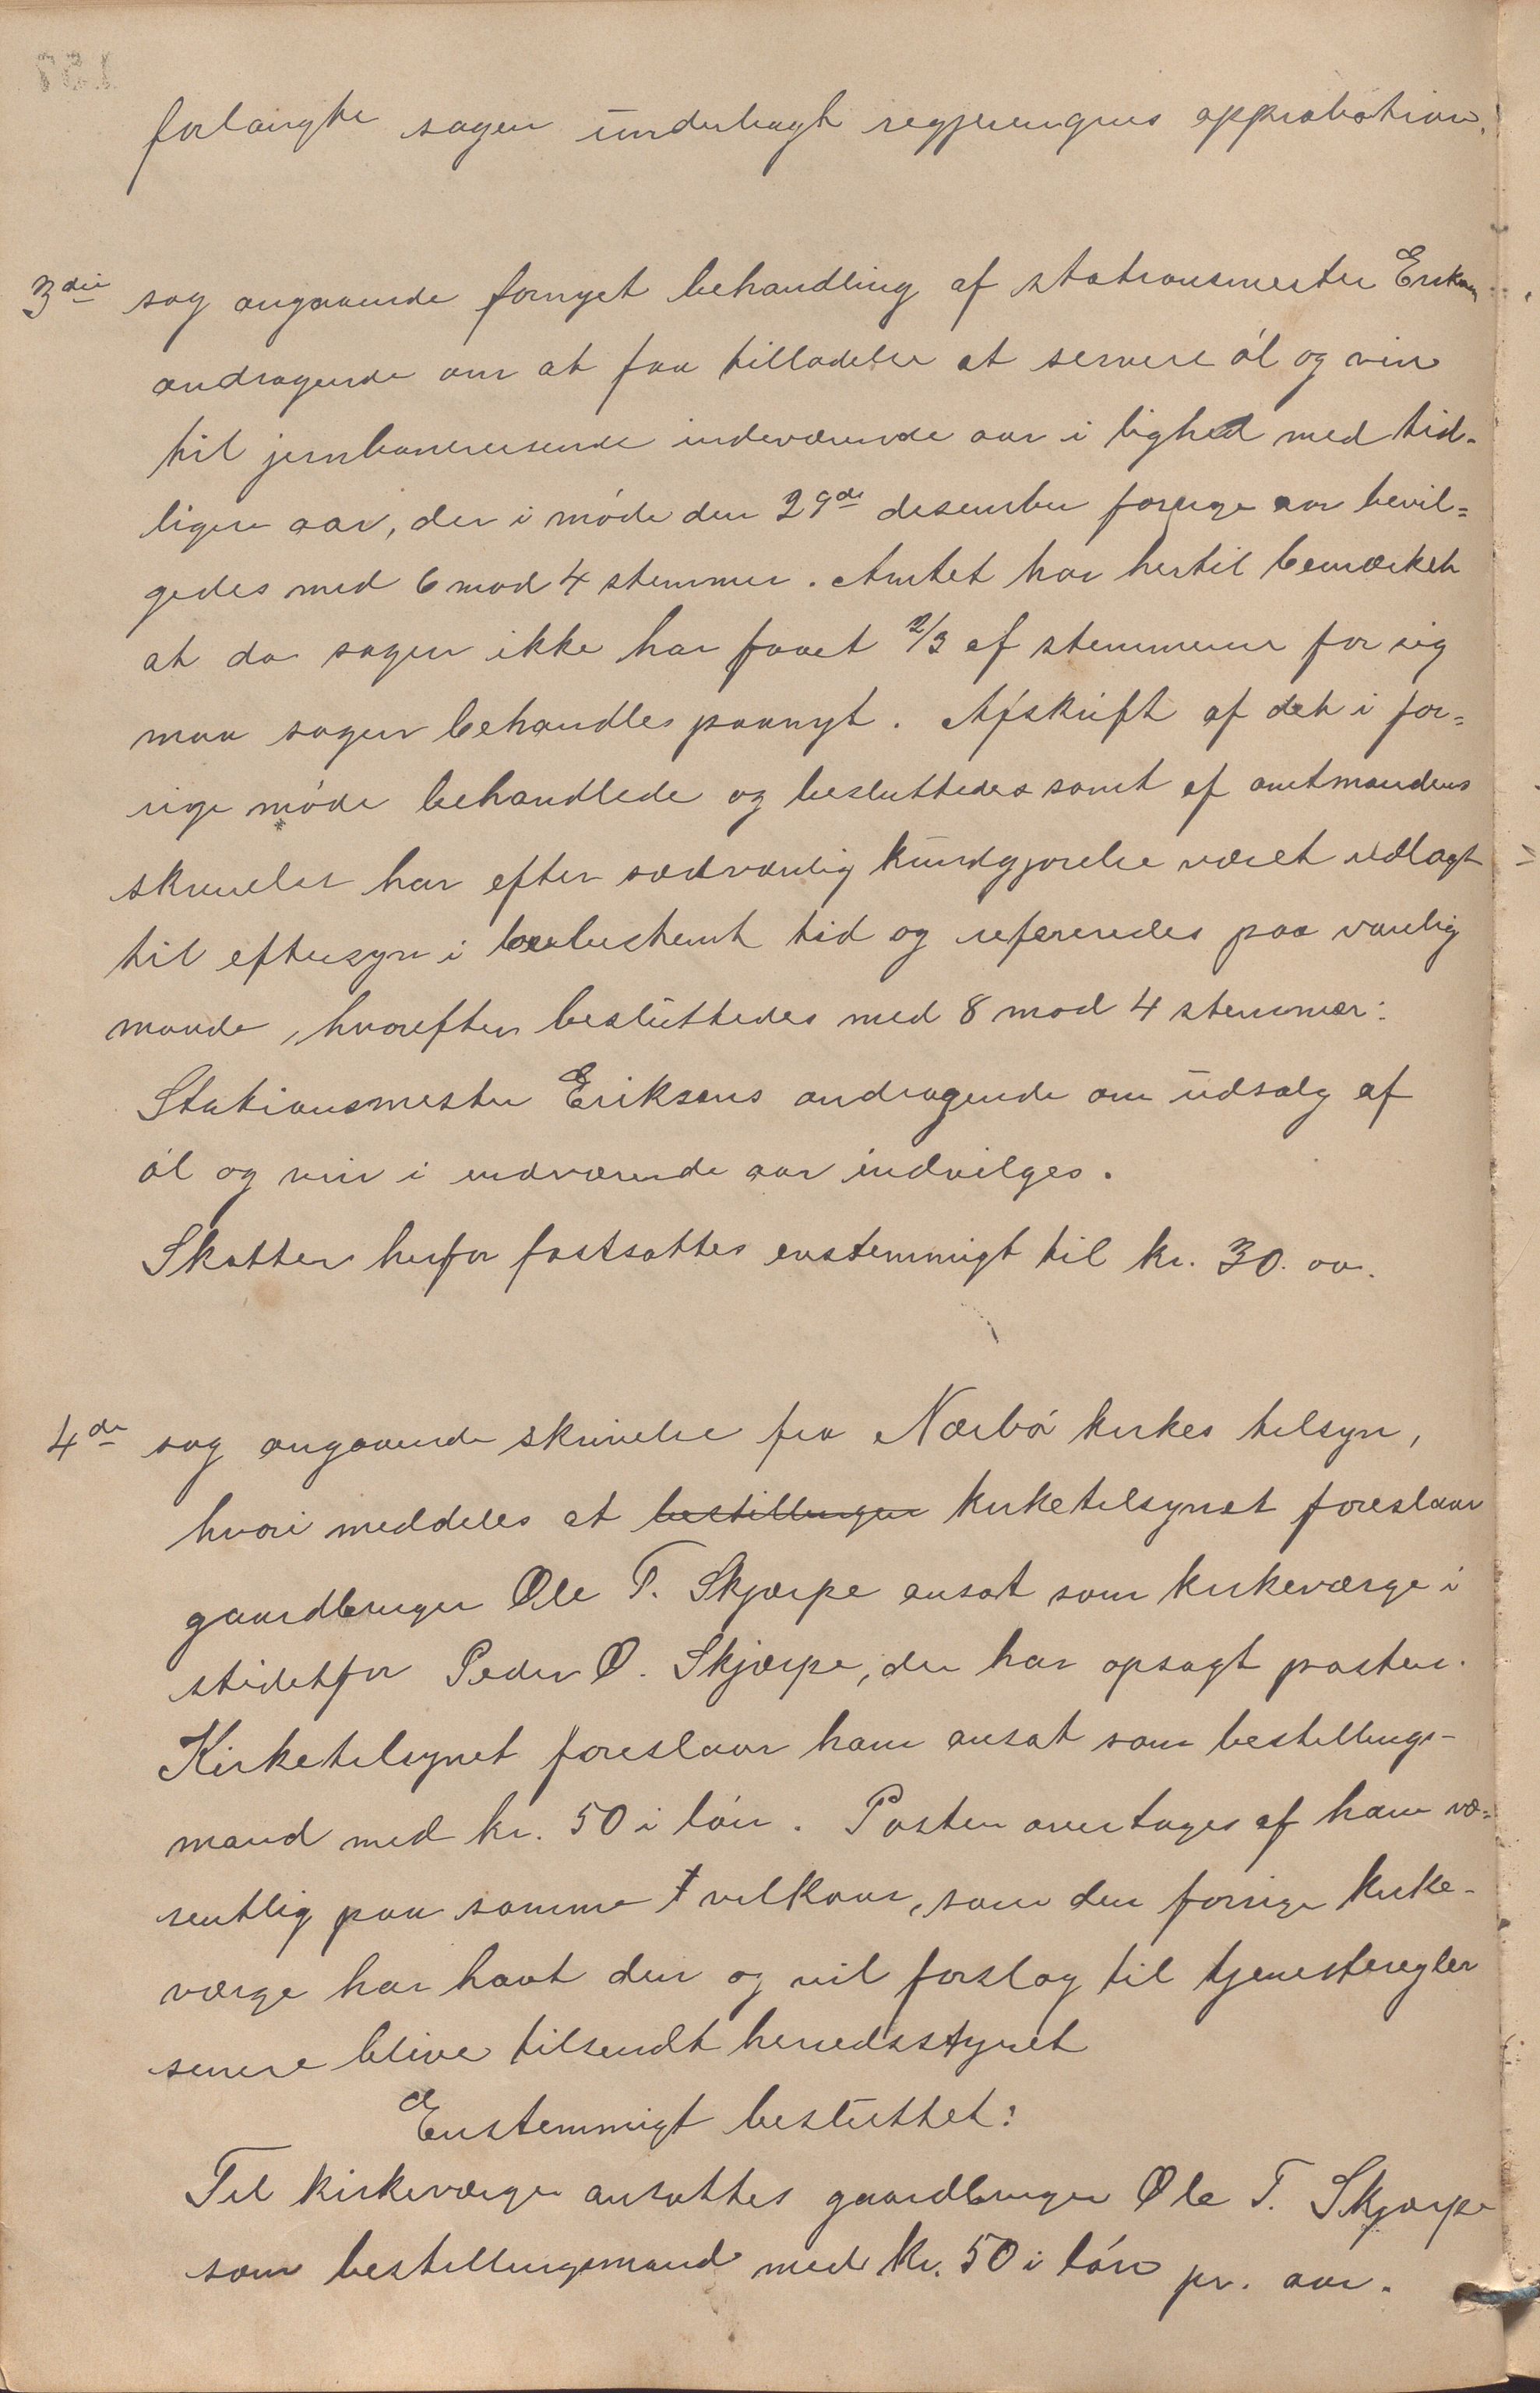 forlangte sagen underlagt regjeringens approbation.
3die sag angaaende fornyet behandling af stationsmester Eriksens
andragende om at faa tilladelse at servere øl og vin
til jernbanereisende indeværende aar i lighed med tid-
ligere aar, der i møde den 29de desember forrige aar bevil=
gedes med 6 mod 4 stemmer. Amtet har hertil bemærket
at da sagen ikke har faaet 2/3 af stemmerne for sig
maa sagen behandles paanyt. Afskrift af det i for=
rige møde behandlede og besluttedes samt af amtmandens
skrivelse har efter sædvanlig kundgjørelse været udlagt
til eftersyn i bestemt tid og refereredes paa vanlig
maade, hvorefter besluttedes med 8 mod 4 stemmer:
Stationsmester Eriksens andragende om udsalg af
øl og vin i indværende aar indvilges.
Skatten herfor fastsattes enstemmigt til kr. 30.00.
4de sag angaaende skrivelse fra Nærbø kirkes tilsyn,
hvori meddeles at bestillingen kirketilsynet foreslaar
gaardbruger Ole T. Skjærpe ansat som kirkeværge i
stedetfor Peder O. Skjærpe, der har opsagt posten.
Kirketilsynet foreslaar ham ansat som bestillings-
mand med kr. 50 i løn. Posten overtages af ham væ=
sentlig paa samme vilkaar, som den forrige kirke-
værge har havt den og vil forslag til tjenesteregler
senere blive tilsendt herredsstyret
Enstemmigt besluttet:
Til kirkeværge ansattes gaardbruger Ole T. Skjærpe
som bestillingsmand med kr. 50 i løn pr. aar.